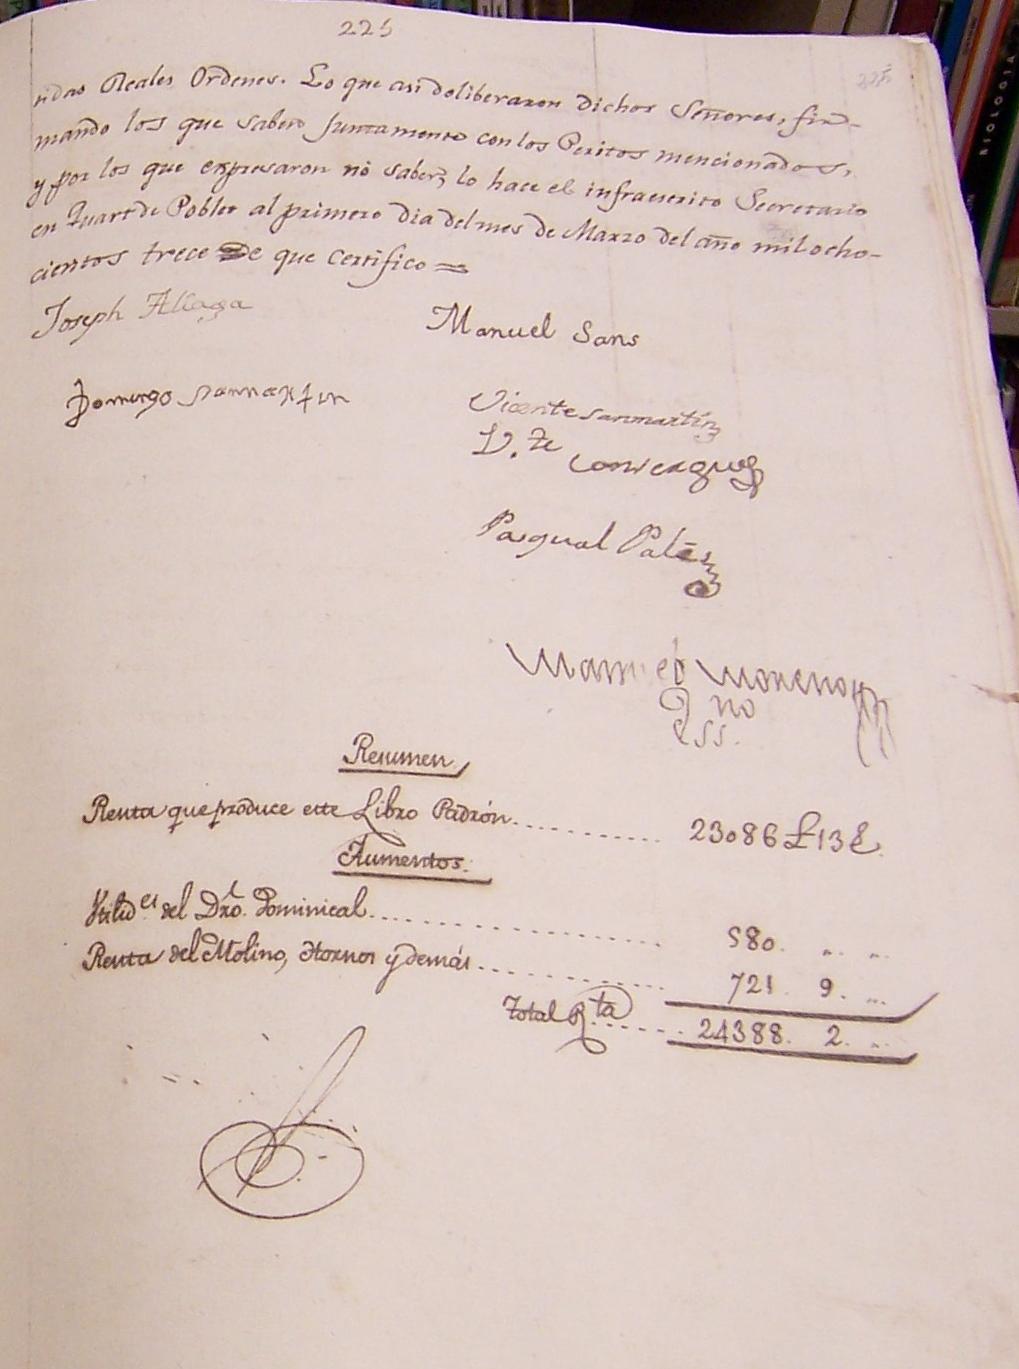 225
ridas Reales Ordenes. Lo que asi doliberaron dichos Señores, fir-
mando los que saben juntamente con los Peritos mencionados,
y por los que expresaron no saber, lo hace el infraescrito Secretario
en Quart de Poblet al primero dia del mes de Marzo del año mil ocho-
cientos trece de que Certifico =
Joseph Aliaga
Manuel Sans
Domingo Sanmartin
Vicente sanmartín
V.te
Pasqual
Manuel Moreno
Resumen
Renta que produce este Libro Padrón 23086 £ 13 S
Aumentos.
Utilid.es del Dro. Dominical 580
Renta del Molino, Hornos y demás 721 9
total R.ta 24388. 2.
BIOLOGIA